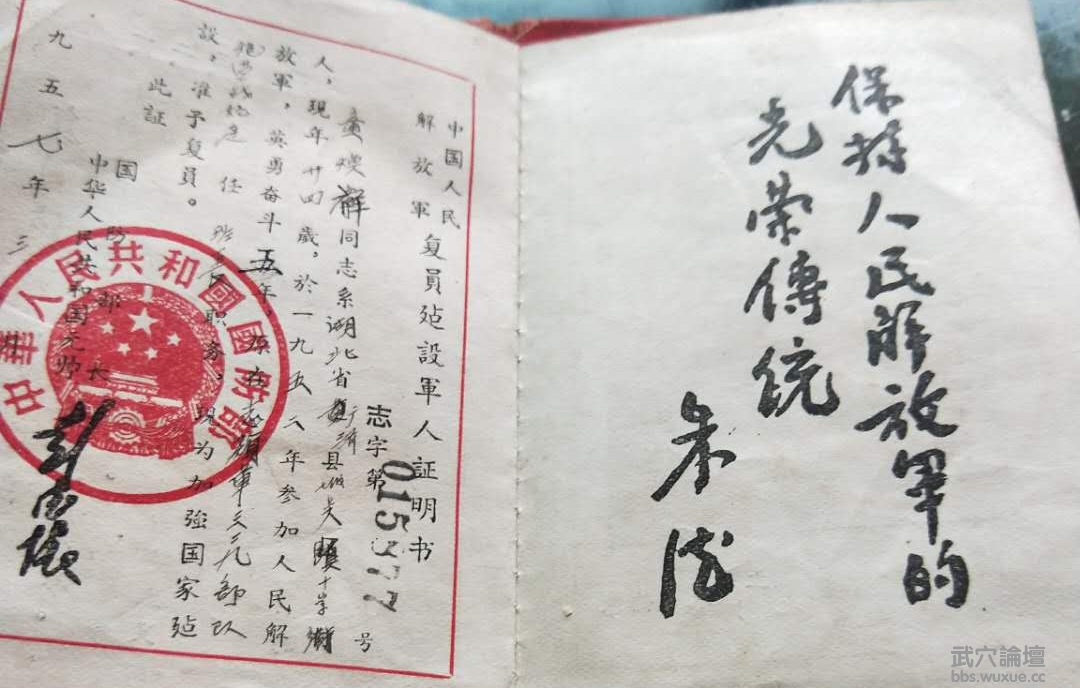 保持人民解放軍的
光荣傳统
朱德
中国人民
解放軍
复員建設軍人証明书
志字第01577号
同志系湖北省县十字街
人，现年廿四歲，於一九五二年参加人民解
放軍，英勇奋斗五年。原在志願軍三三九部队
任 职务，现为加強国家建
設，准予复員。
此証
国防部长
中华人民共和国元帅
彭德怀
九五七年三月
中華人民共和國國防部
武穴論壇
bbs.wuxue.cc